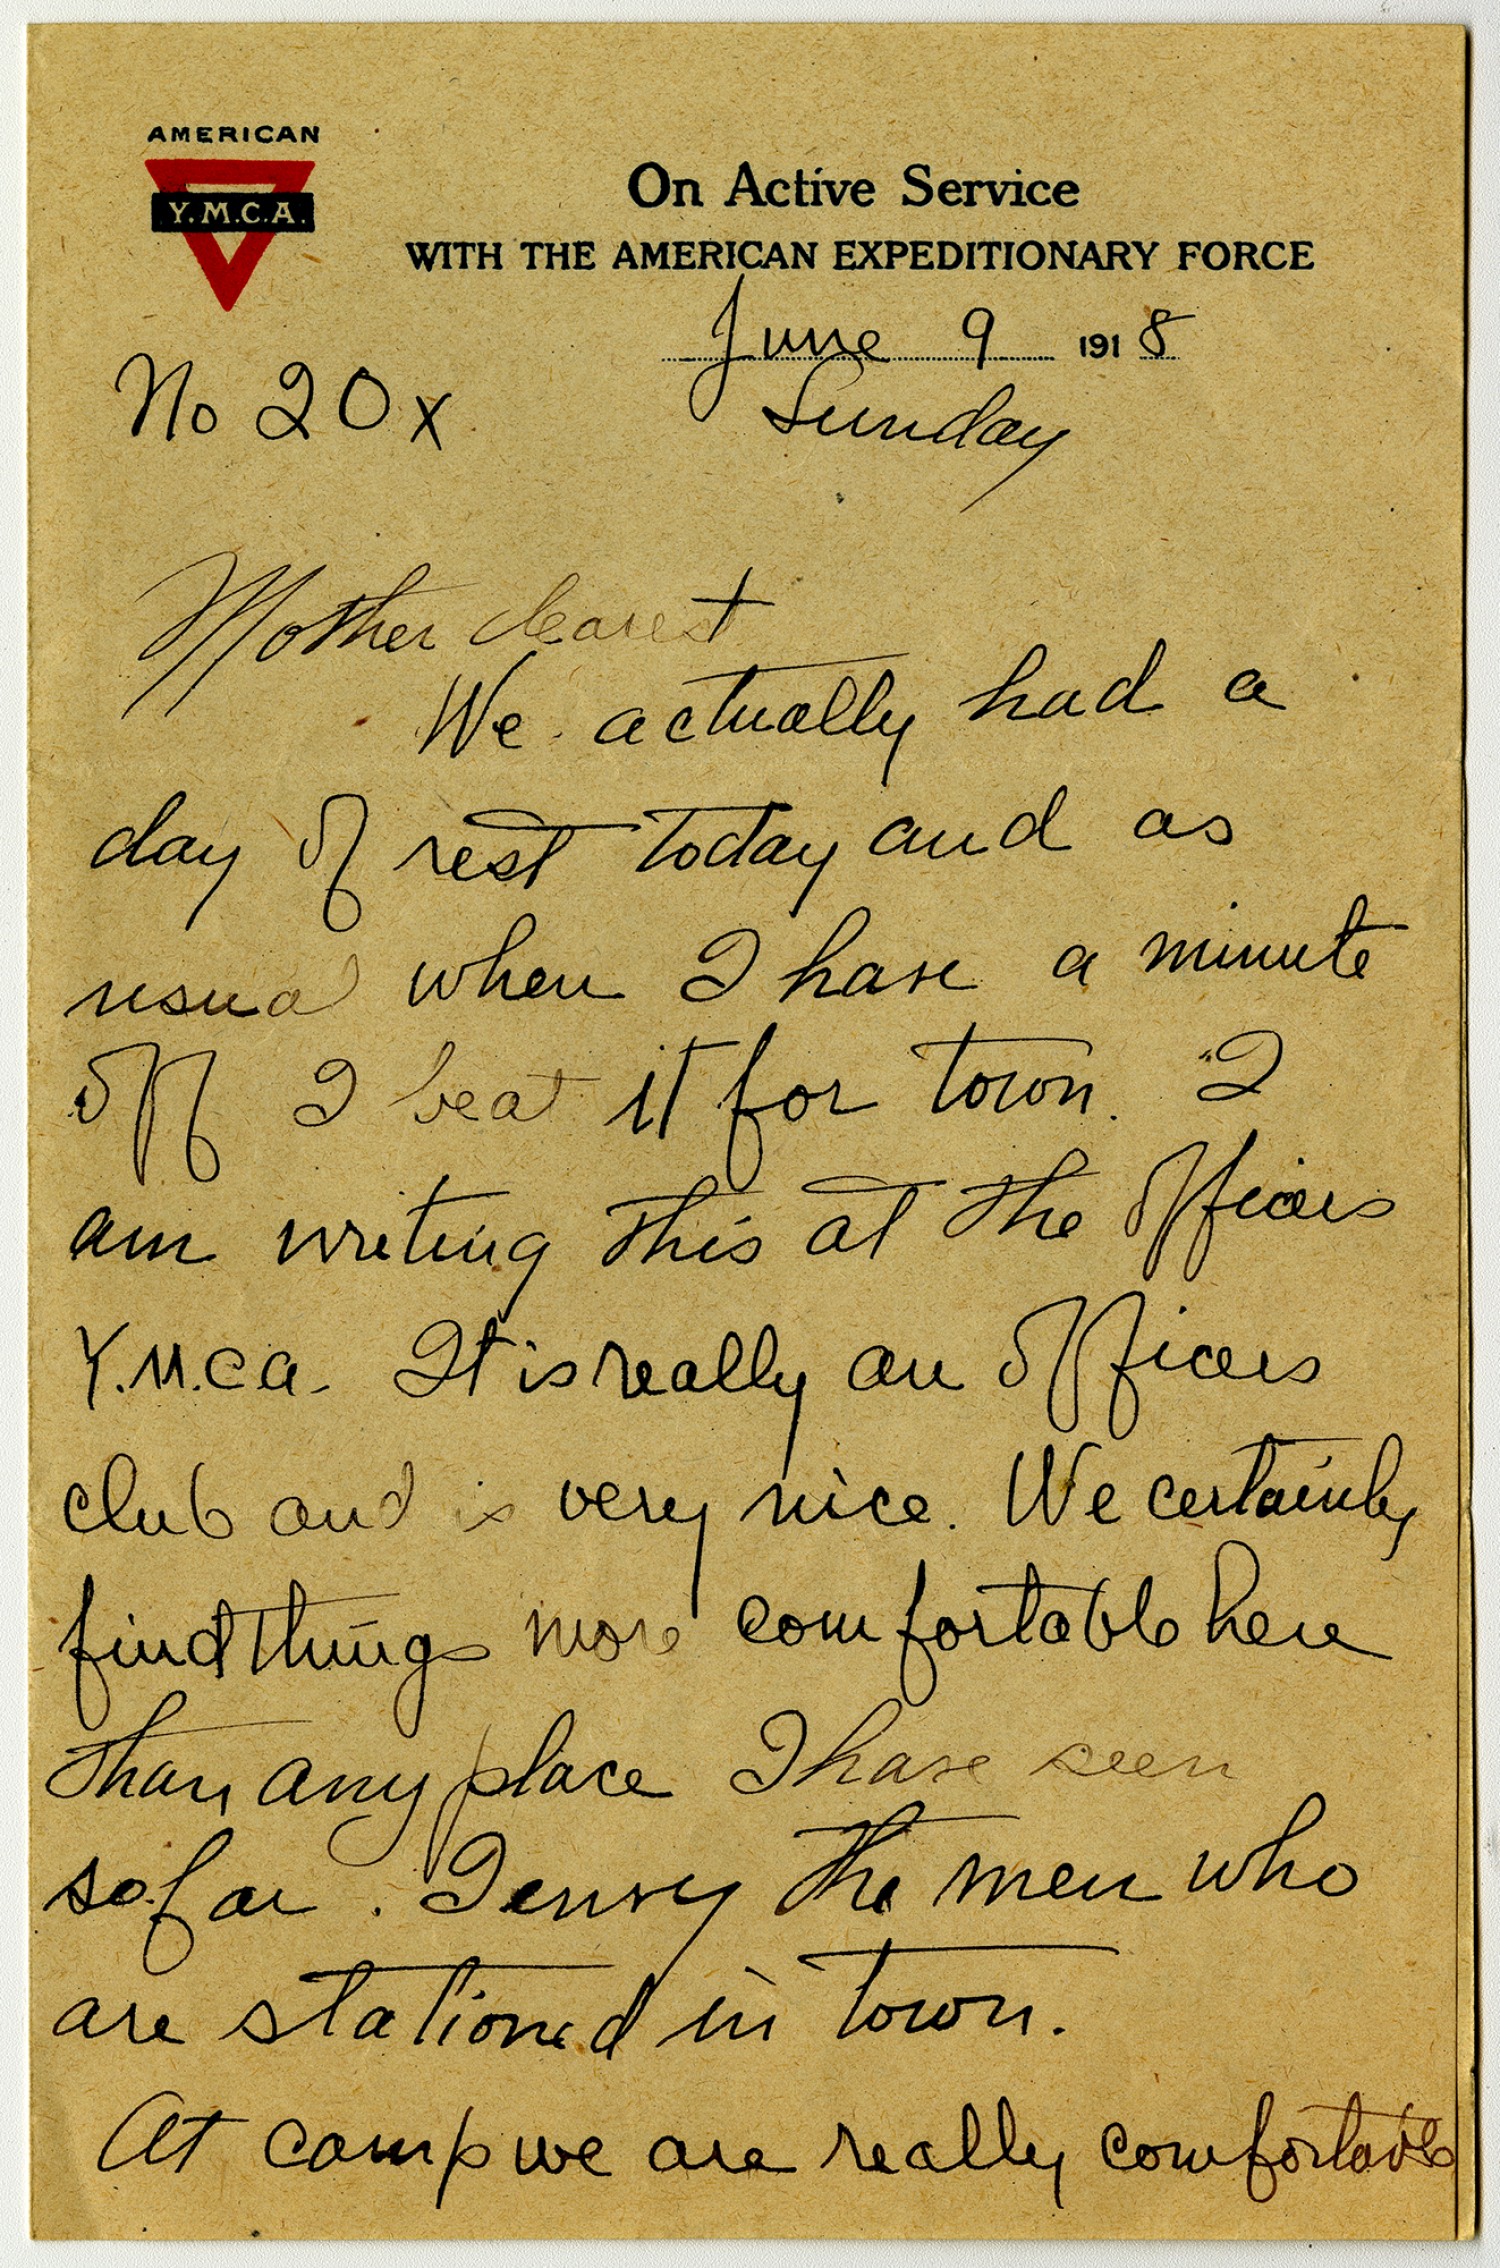 AMERICAN
Y.M.C.A.
On Active Service
WITH THE AMERICAN EXPEDITIONARY FORCE
June 9 1918
No 20x
Sunday
Mother dearest
We actually had a
day of rest today and as
usual when I have a minute
off I beat it for town. I
am writing this at the officers
Y.M.C.A. It is really an officers
club and is very nice. We certainly
find things more comfortable here
than any place I have seen
so far. I envy the men who
are stationed in town.
At camp we are really comfortable